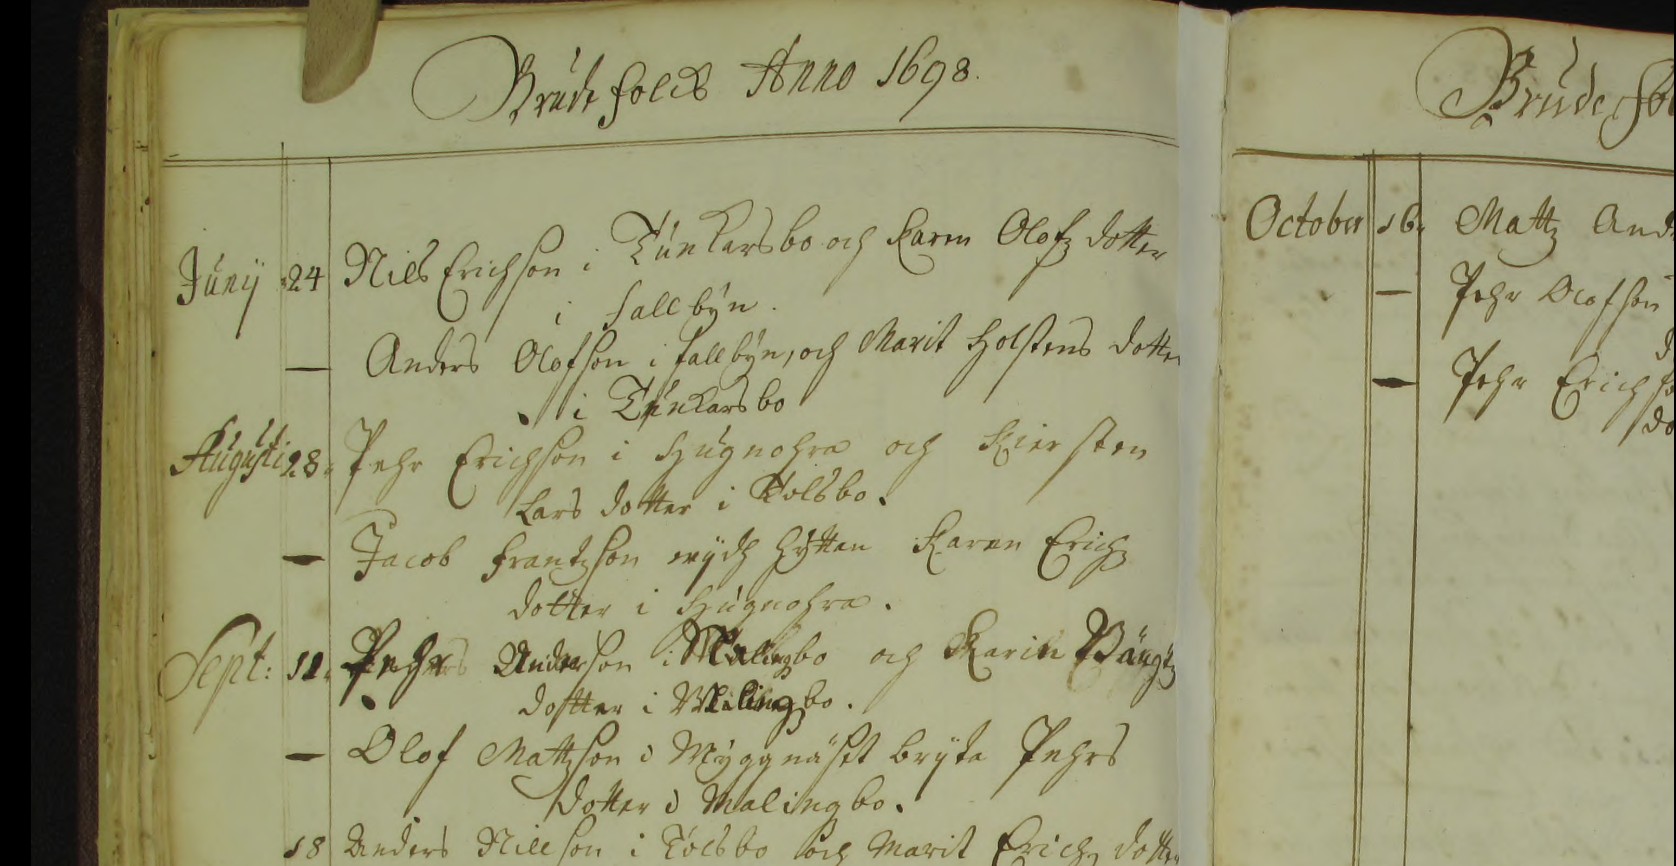 Brudefolck Anno 1698.
Junÿ 24 Nils Erichson i Tunkarsbo och Karen Olofz dotter
i fallbÿn.
— Anders Olofson i fallbÿn, och Marit Holstens dotter
i Tunkarsbo
Augusti 28. Pehr Erichson i Hugnohra och Kiersten
Lars dotter i Tolsbo.
— Jacob Frantzson wydh Hyttan Karen Erichz
dotter i Hugnohra.
Sept: 11. Pehr Anderson i Malingbo och Karin Bängtz
dotter i Malingbo.
— Olof Mattzson i Mÿggnäset Brÿta Pehrs
dotter i Malingbo.
18 Anders Nillson i Tolsbo och Marit Erichz dotter
Brudefol
October 16. Mattz And
— Pehr Olofson
— Pehr Erichso
do